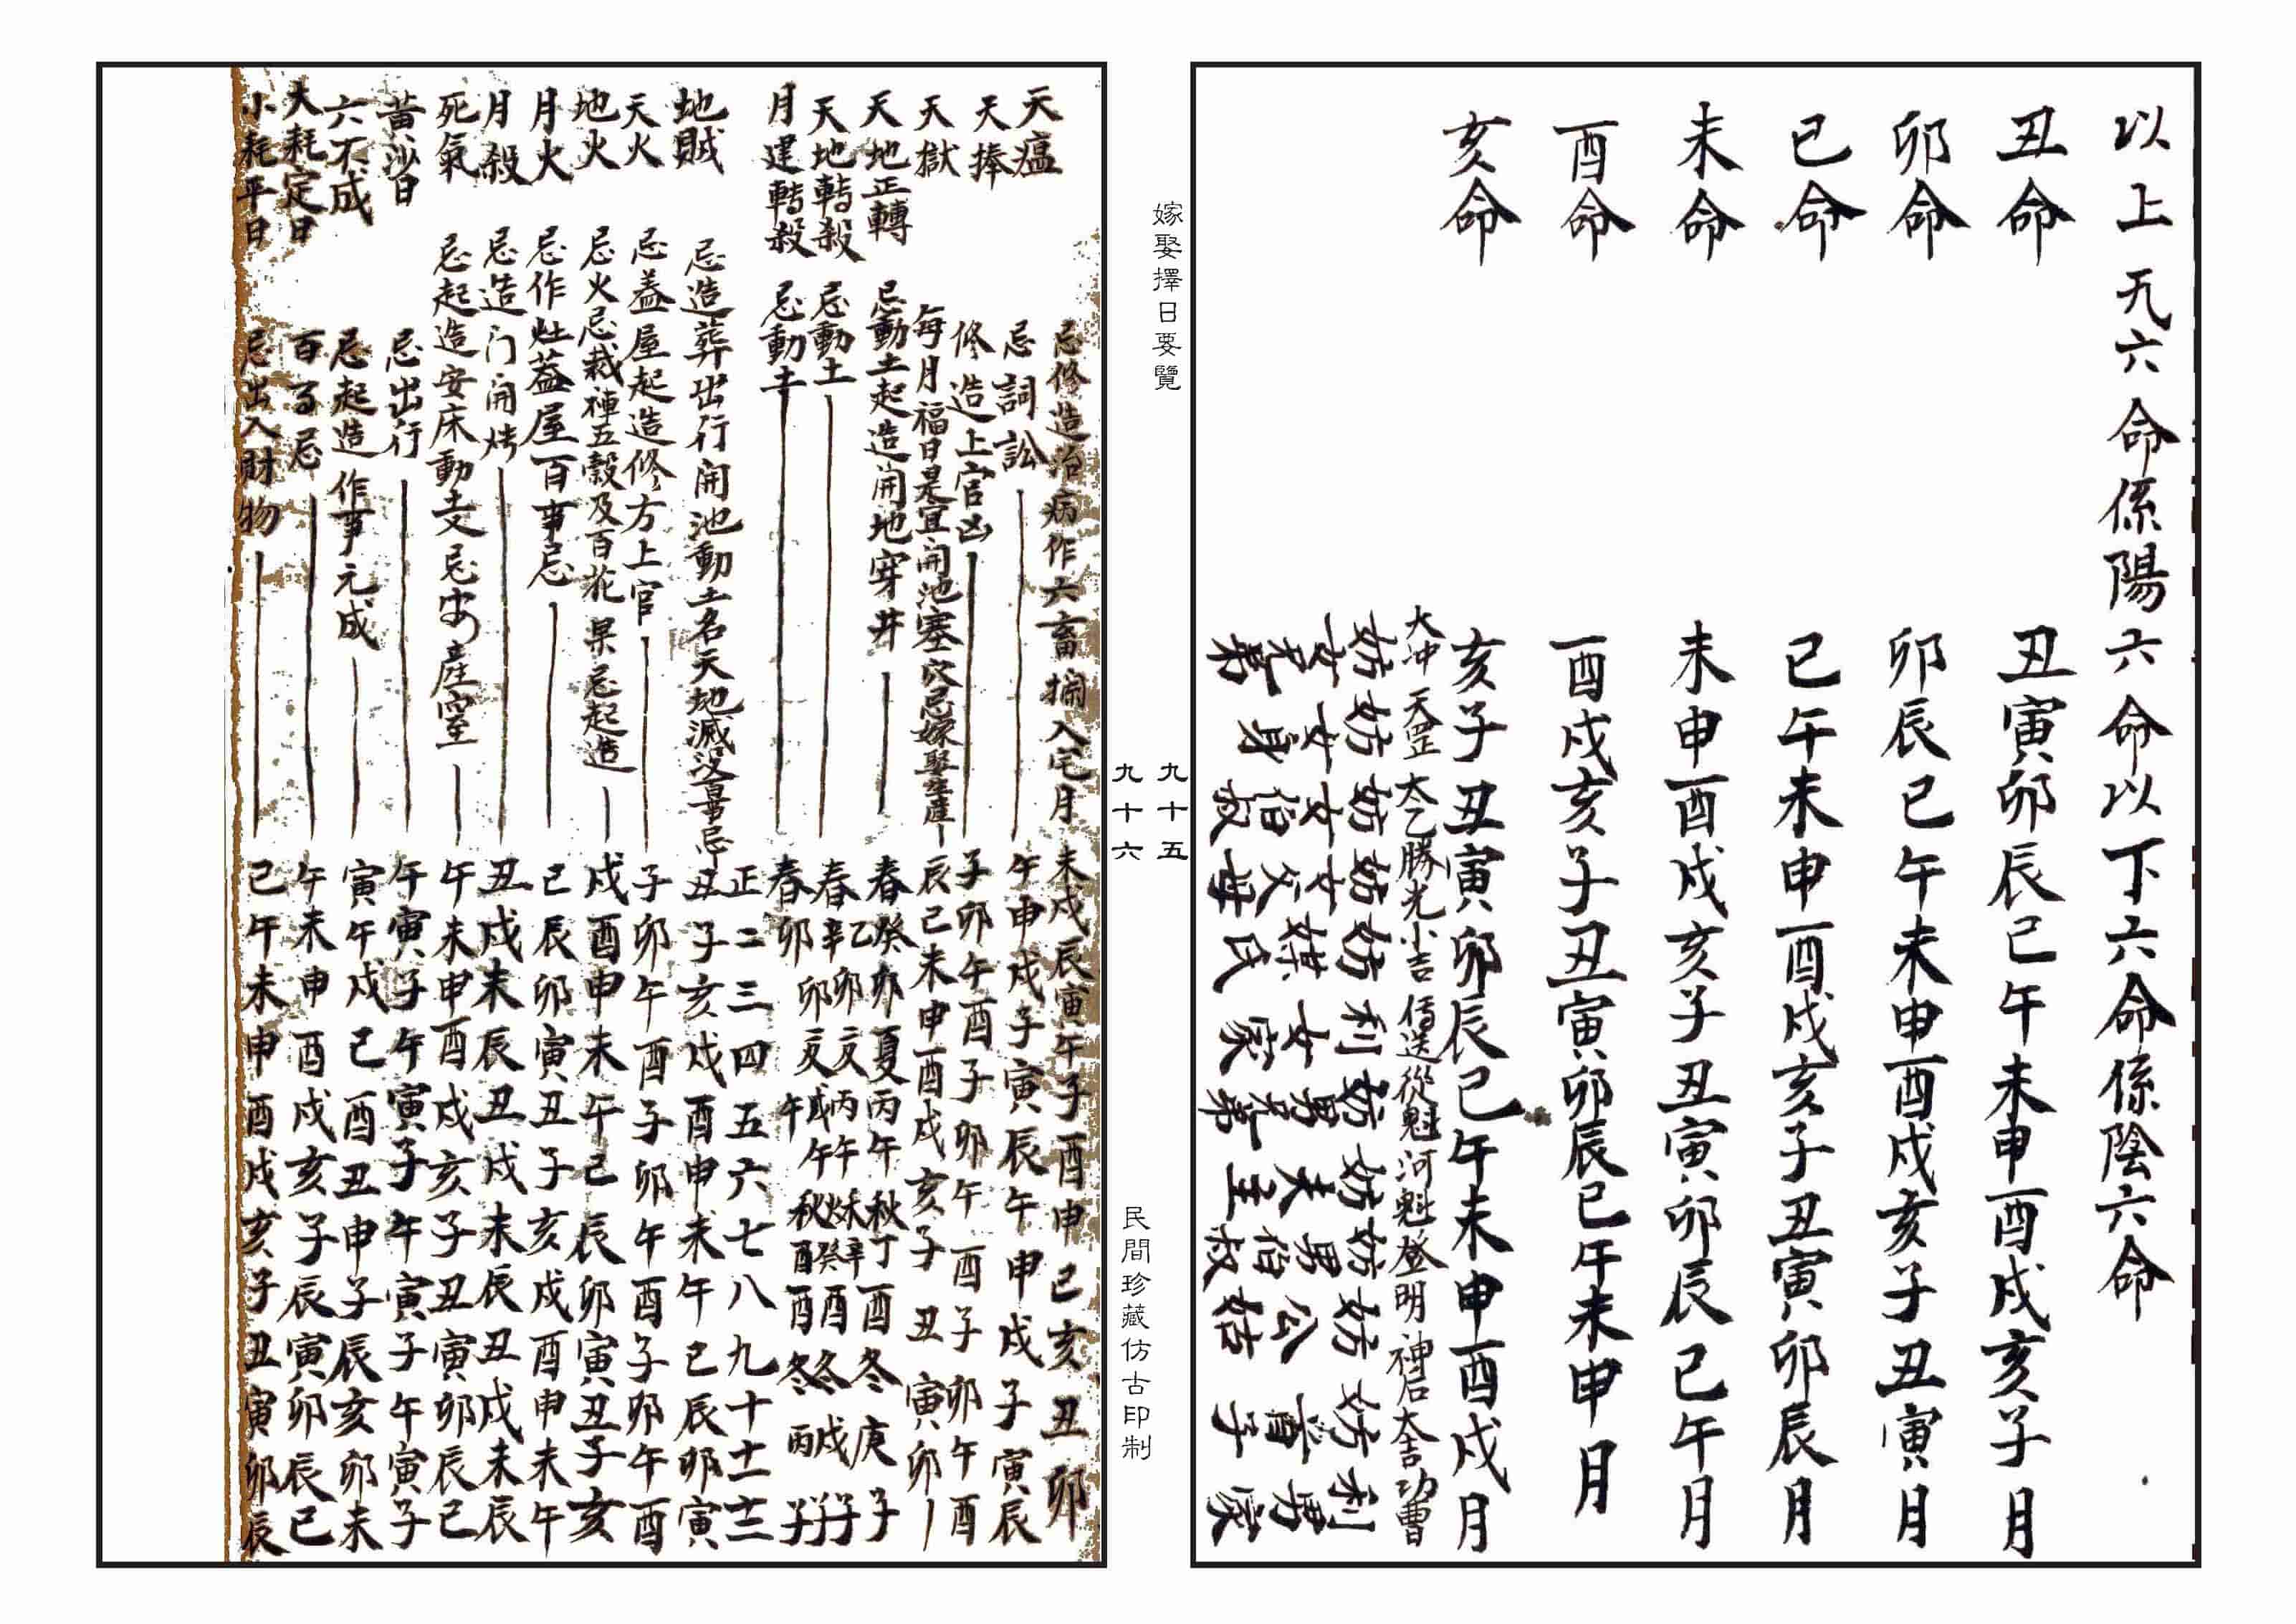 以上六命係陽六命以下六命係陰六命
丑命 丑寅卯辰巳午未申酉戌亥子月
卯命 卯辰巳午未申酉戌亥子丑寅月
巳命 巳午未申酉戌亥子丑寅卯辰月
未命 未申酉戌亥子丑寅卯辰巳午月
酉命 酉戌亥子丑寅卯辰巳午未申月
亥命 亥子丑寅卯辰巳午未申酉戌月
大冲 天罡 太乙 勝光 小吉 傳送 從魁 河魁 登明 神后 大吉 功曹
妨女兄弟
妨女身
妨女伯叔
妨女父母
妨媒氏
利女家
妨男兄弟
妨夫主
妨男伯叔
妨公姑
妨首子
利男家
嫁娶擇日要覽
九十五
九十六
民間珍藏仿古印制
天瘟 忌修造治病作六畜欄入宅月 未戌辰寅午子酉申巳亥丑卯
天捧 忌詞訟 午申戌子寅辰午申戌子寅辰
天獄 修造上官凶 子卯午酉子卯午酉子卯午酉
每月福日是宜開池塞穴忌嫁娶生產 辰巳未申酉戌亥子丑寅卯
天地正轉 忌動土起造開地穿井 春癸卯夏丙午秋丁酉冬庚子
天地轉殺 忌動土 春乙卯 辛卯 夏丙午 戊午 秋辛酉 癸酉 冬
月建轉殺 忌動土 春卯夏午秋酉冬子
正二三四五六七八九十十一十二
地賊 忌造葬出行開池動土名天地滅没日 丑子亥戌酉申未午巳辰卯寅
天火 忌蓋屋起造修方上官 子卯午酉子卯午酉子卯午酉
地火 忌火忌栽種五穀及百花果忌起造 戌酉申未午巳辰卯寅丑子亥
月火 忌作灶蓋屋百事忌 巳辰卯寅丑子亥戌酉申未午
月殺 忌造门開 丑戌未辰丑戌未辰丑戌未辰
死氣 忌起造安床動土又忌安產室 午未申酉戌亥子丑寅卯辰巳
黃沙日 忌出行 午寅子午寅子午寅子午寅子
六不成 忌起造作事无成 寅午戌巳酉丑申子辰亥卯未
大耗定日 百事忌 午未申酉戌亥子辰寅卯辰巳
小耗平日 忌出入財物 巳午未申酉戌亥子丑寅卯辰